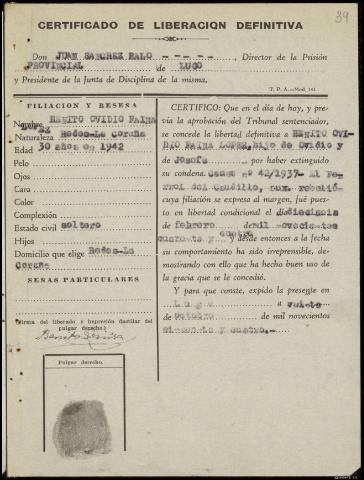 39
CERTIFICADO DE LIBERACION DEFINITIVA
Don JUAN SANCHEZ RALO - - - - -, Director de la Prisión
PROVINCIAL de LUGO
y Presidente de la Junta de Disciplina de la misma.
T. P. A.—Mod. 141
FILIACION Y RESEÑA
Nombre BENITO OVIDIO FAINA
Naturaleza Rodos-La Coruña
Edad 30 años en 1942
Pelo
Ojos
Cara
Color
Complexión
Estado civil soltero
Hijos
Domicilio que elige Rodos-La
Coruña
SEÑAS PARTICULARES
(Firma del liberado e impresión dactilar del
pulgar derecho.)
Pulgar derecho.
CERTIFICO: Que en el día de hoy, y pre-
via la aprobación del Tribunal sentenciador,
se concede la libertad definitiva a BENITO OVI-
DIO FAINA LOPEZ, hijo de Ovidio y
de Josefa por haber extinguido
su condena. Causa nº 42/1937- El Fe-
rrol del Caudillo, aux. rebelión
cuya filiación se expresa al margen, fué pues-
to en libertad condicional el día dieciseis
de febrero de mil novecientos
cuarenta y cuatro y desde entonces a la fecha
su comportamiento ha sido irreprensible, de-
mostrando con ello que ha hecho buen uso de
la gracia que se le concedió.
Y para que conste, expido la presente en
Lugo a veinte
de octubre de mil novecientos
cincuenta y cuatro.-